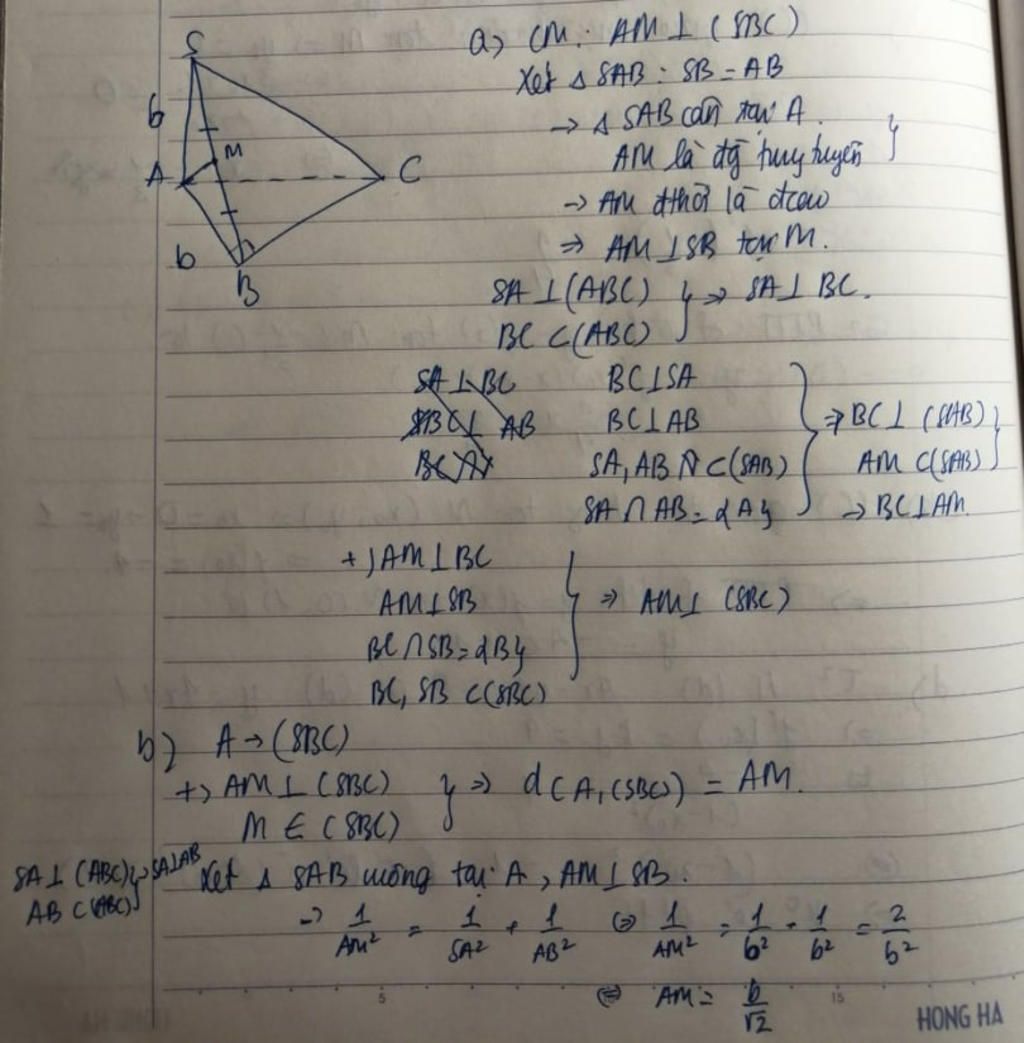 S
b
M
A
C
b
B
a) CM: AM ⊥ (SBC)
Xét Δ SAB: SB = AB
→ Δ SAB cân tại A.
AM là đg trung tuyến }
→ AM đthời là đcao
⇒ AM ⊥ SB tại M.
SA ⊥ (ABC) } ⇒ SA ⊥ BC.
BC ⊂ (ABC)
SA ⊥ BC BC ⊥ SA
BC ⊥ AB BC ⊥ AB } ⇒ BC ⊥ (SAB) }
SA, AB ⊂ (SAB) AM ⊂ (SAB)
SA ∩ AB = {A} → BC ⊥ AM.
+) AM ⊥ BC
AM ⊥ SB } ⇒ AM ⊥ (SBC)
BC ∩ SB = {B}
BC, SB ⊂ (SBC)
b) A → (SBC)
+) AM ⊥ (SBC) } ⇒ d(A,(SBC)) = AM.
M ∈ (SBC)
SA ⊥ (ABC) } → SA ⊥ AB
AB ⊂ (ABC)
Xét Δ SAB vuông tại A, AM ⊥ SB.
→ 1/AM² = 1/SA² + 1/AB² ⇔ 1/AM² = 1/b² + 1/b² = 2/b²
⇔ AM = b/√2
5
15
HONG HA